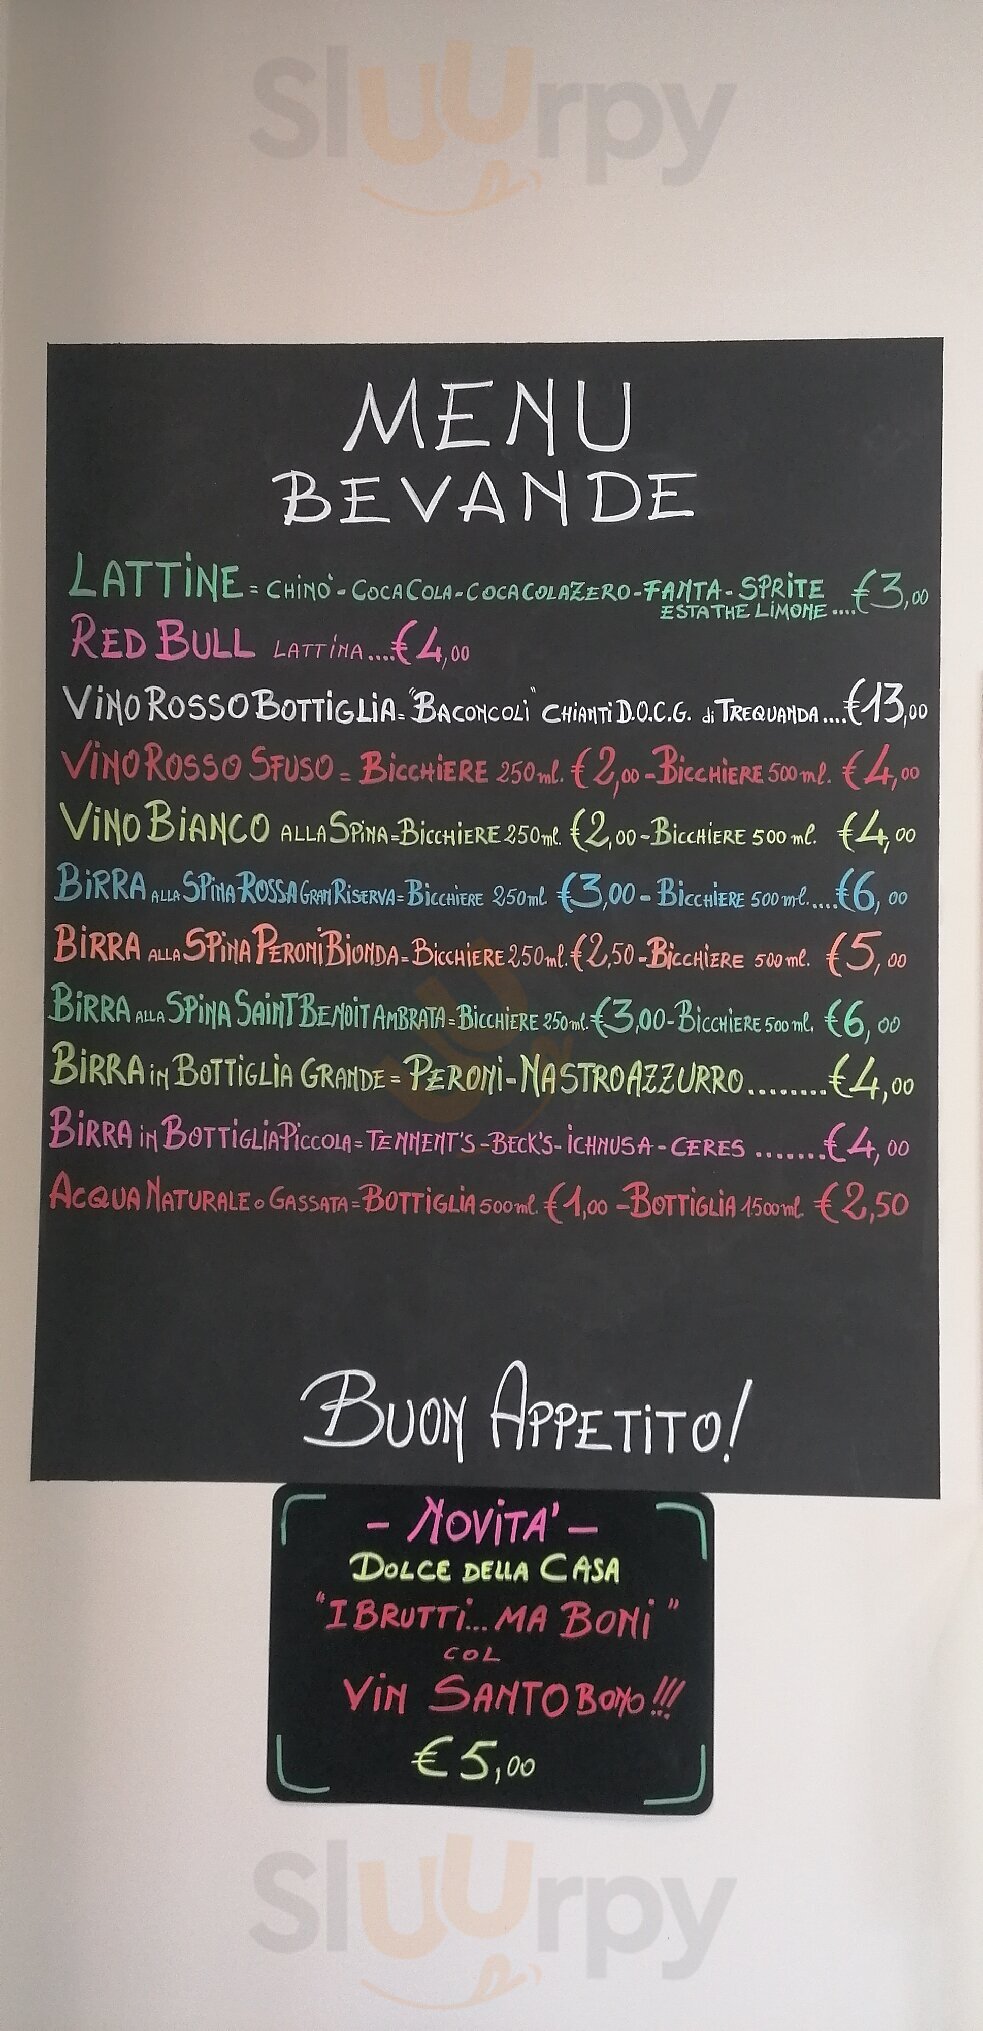 Sluurpy
MENU
BEVANDE
LATTINE = CHINO' - COCA COLA - COCA COLA ZERO - FANTA - SPRITE €3,00
ESTATHE LIMONE....
RED BULL LATTINA....€4,00
VINO ROSSO BOTTIGLIA = "BACONCOLI" CHIANTI D.O.C.G. di TREQUANDA....€13,00
VINO ROSSO SFUSO = BICCHIERE 250ml. €2,00 - BICCHIERE 500ml. €4,00
VINO BIANCO ALLA SPINA = BICCHIERE 250ml. €2,00 - BICCHIERE 500 ml. €4,00
BIRRA ALLA SPINA ROSSA GRAN RISERVA = BICCHIERE 250ml. €3,00 - BICCHIERE 500 ml....€6,00
BIRRA ALLA SPINA PERONI BIONDA = BICCHIERE 250ml. €2,50 - BICCHIERE 500ml. €5,00
BIRRA ALLA SPINA SAINT BENOIT AMBRATA = BICCHIERE 250ml. €3,00 - BICCHIERE 500ml. €6,00
BIRRA in BOTTIGLIA GRANDE = PERONI - NASTRO AZZURRO.........€4,00
BIRRA in BOTTIGLIA PICCOLA = TENNENT'S - BECK'S - ICHNUSA - CERES .......€4,00
ACQUA NATURALE o GASSATA = BOTTIGLIA 500ml. €1,00 - BOTTIGLIA 1500ml. €2,50
BUON APPETITO!
- NOVITA' -
DOLCE DELLA CASA
"I BRUTTI... MA BONI"
COL
VIN SANTO BONO!!!
€5,00
Sluurpy